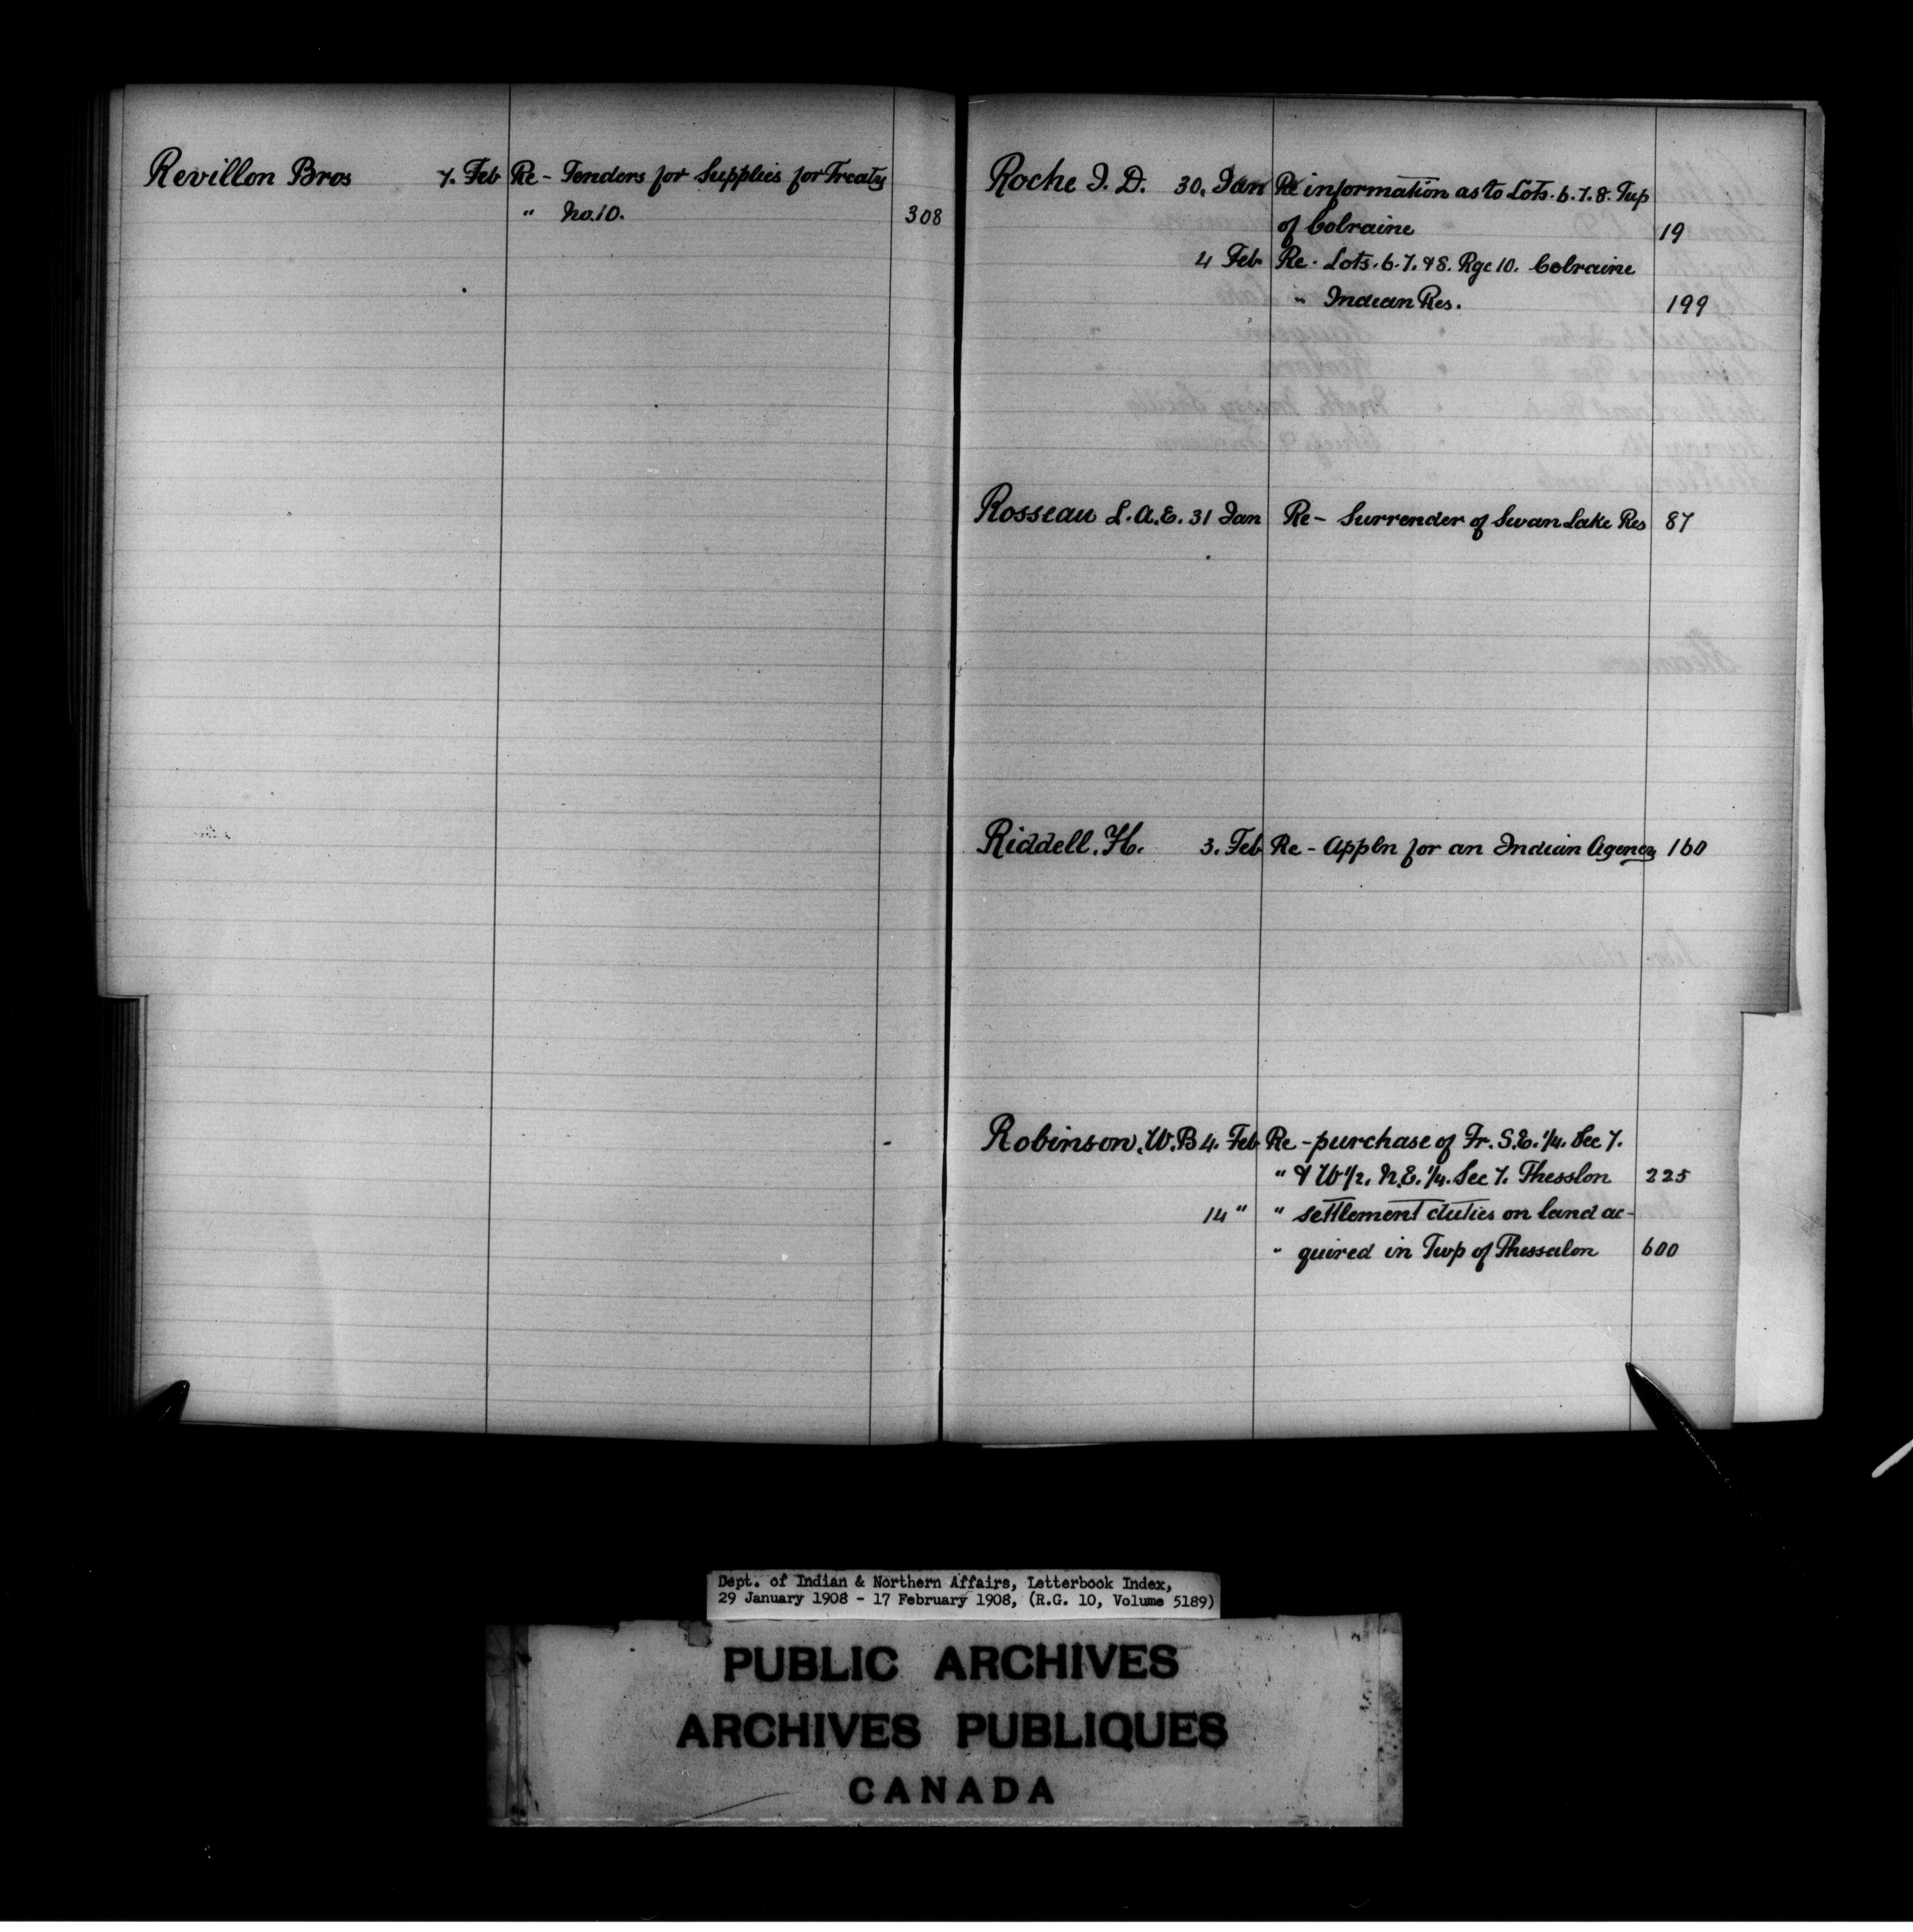 Revillon Bros 7. Feb Re - Tenders for Supplies for Treaty
" No. 10. 308
Roche I. D. 30. Jan Re information as to Lots. 6. 7. 8. Twp
of Colraine 19
4 Feb Re. Lots. 6. 7. & 8. Rge 10. Colraine
" Indian Res. 199
Rosseau L. A. E. 31 Jan Re - Surrender of Swan Lake Res 87
Riddell. H. 3. Feb Re - Appln for an Indian Agency 160
Robinson. W. B 4. Feb Re - purchase of Fr. S.E. 1/4. Sec 7.
" & W 1/2. N.E. 1/4. Sec 7. Thesslon 225
14 " " settlement duties on land ac-
" quired in Twp of Thessalon 600
Dept. of Indian & Northern Affairs, Letterbook Index,
29 January 1908 - 17 February 1908, (R.G. 10, Volume 5189)
PUBLIC ARCHIVES
ARCHIVES PUBLIQUES
CANADA